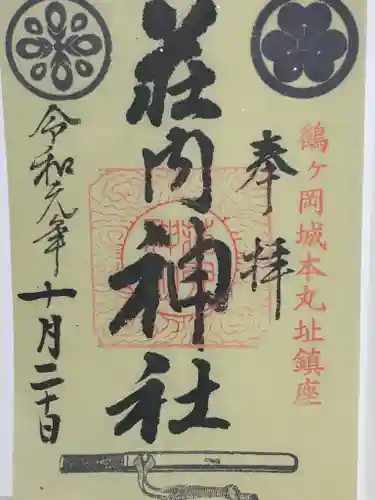 鶴ヶ岡城本丸址鎮座
奉拝
荘内神社
令和元年十月二十日